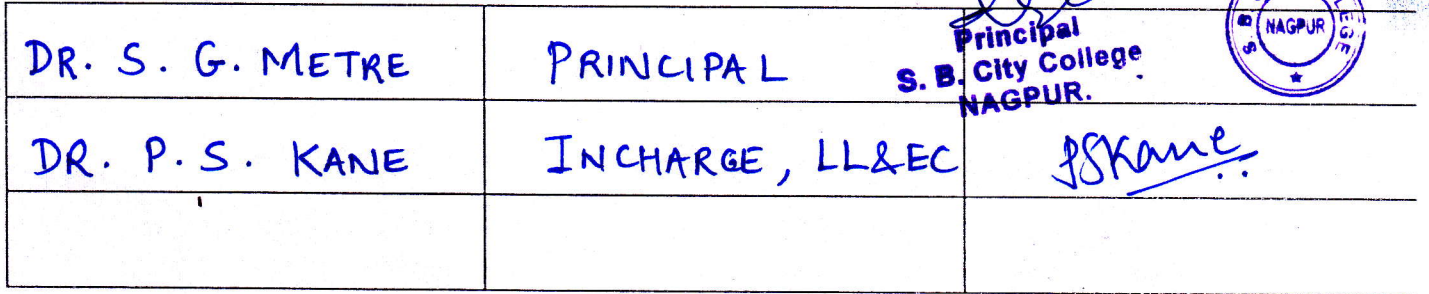 DR. S. G. METRE PRINCIPAL
Principal
S. B. City College
NAGPUR.
NAGPUR
DR. P. S. KANE INCHARGE, LL&EC PSKane